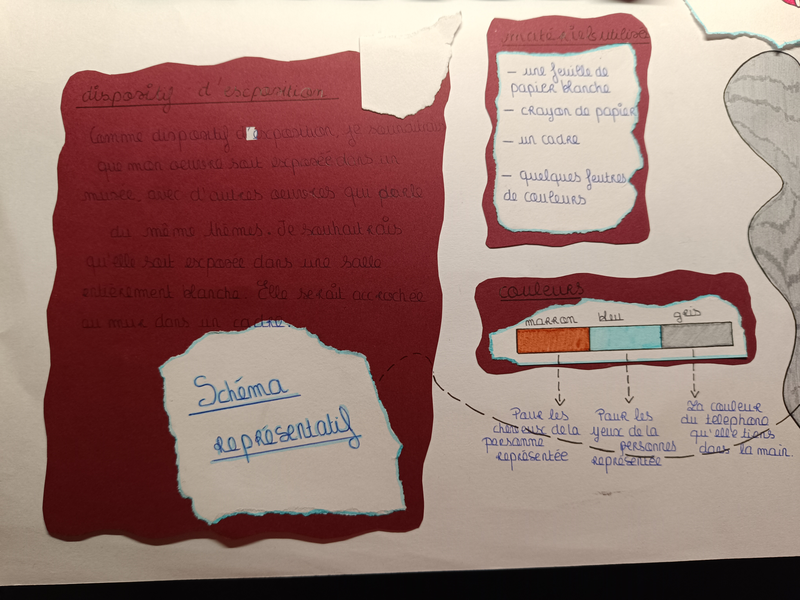 dispositif d'exposition
Comme dispositif d'exposition, je souhaiterais
que mon oeuvre soit exposée dans un
musée, avec d'autres oeuvres qui parle
du même thèmes. Je souhaitrais
qu'elle soit exposée dans une salle
entièrement blanche. Elle serait accrochée
au mur dans un cadre.
Schéma
représentatif
matériels utilisés
- une feuille de
papier blanche
- crayon de papier
- un cadre
- quelques feutres
de couleurs
couleurs
marron bleu gris
Pour les
cheveux de la
personne
représentée
Pour les
yeux de la
personnes
représentée
La couleur
du téléphone
qu'elle tiens
dans la main.